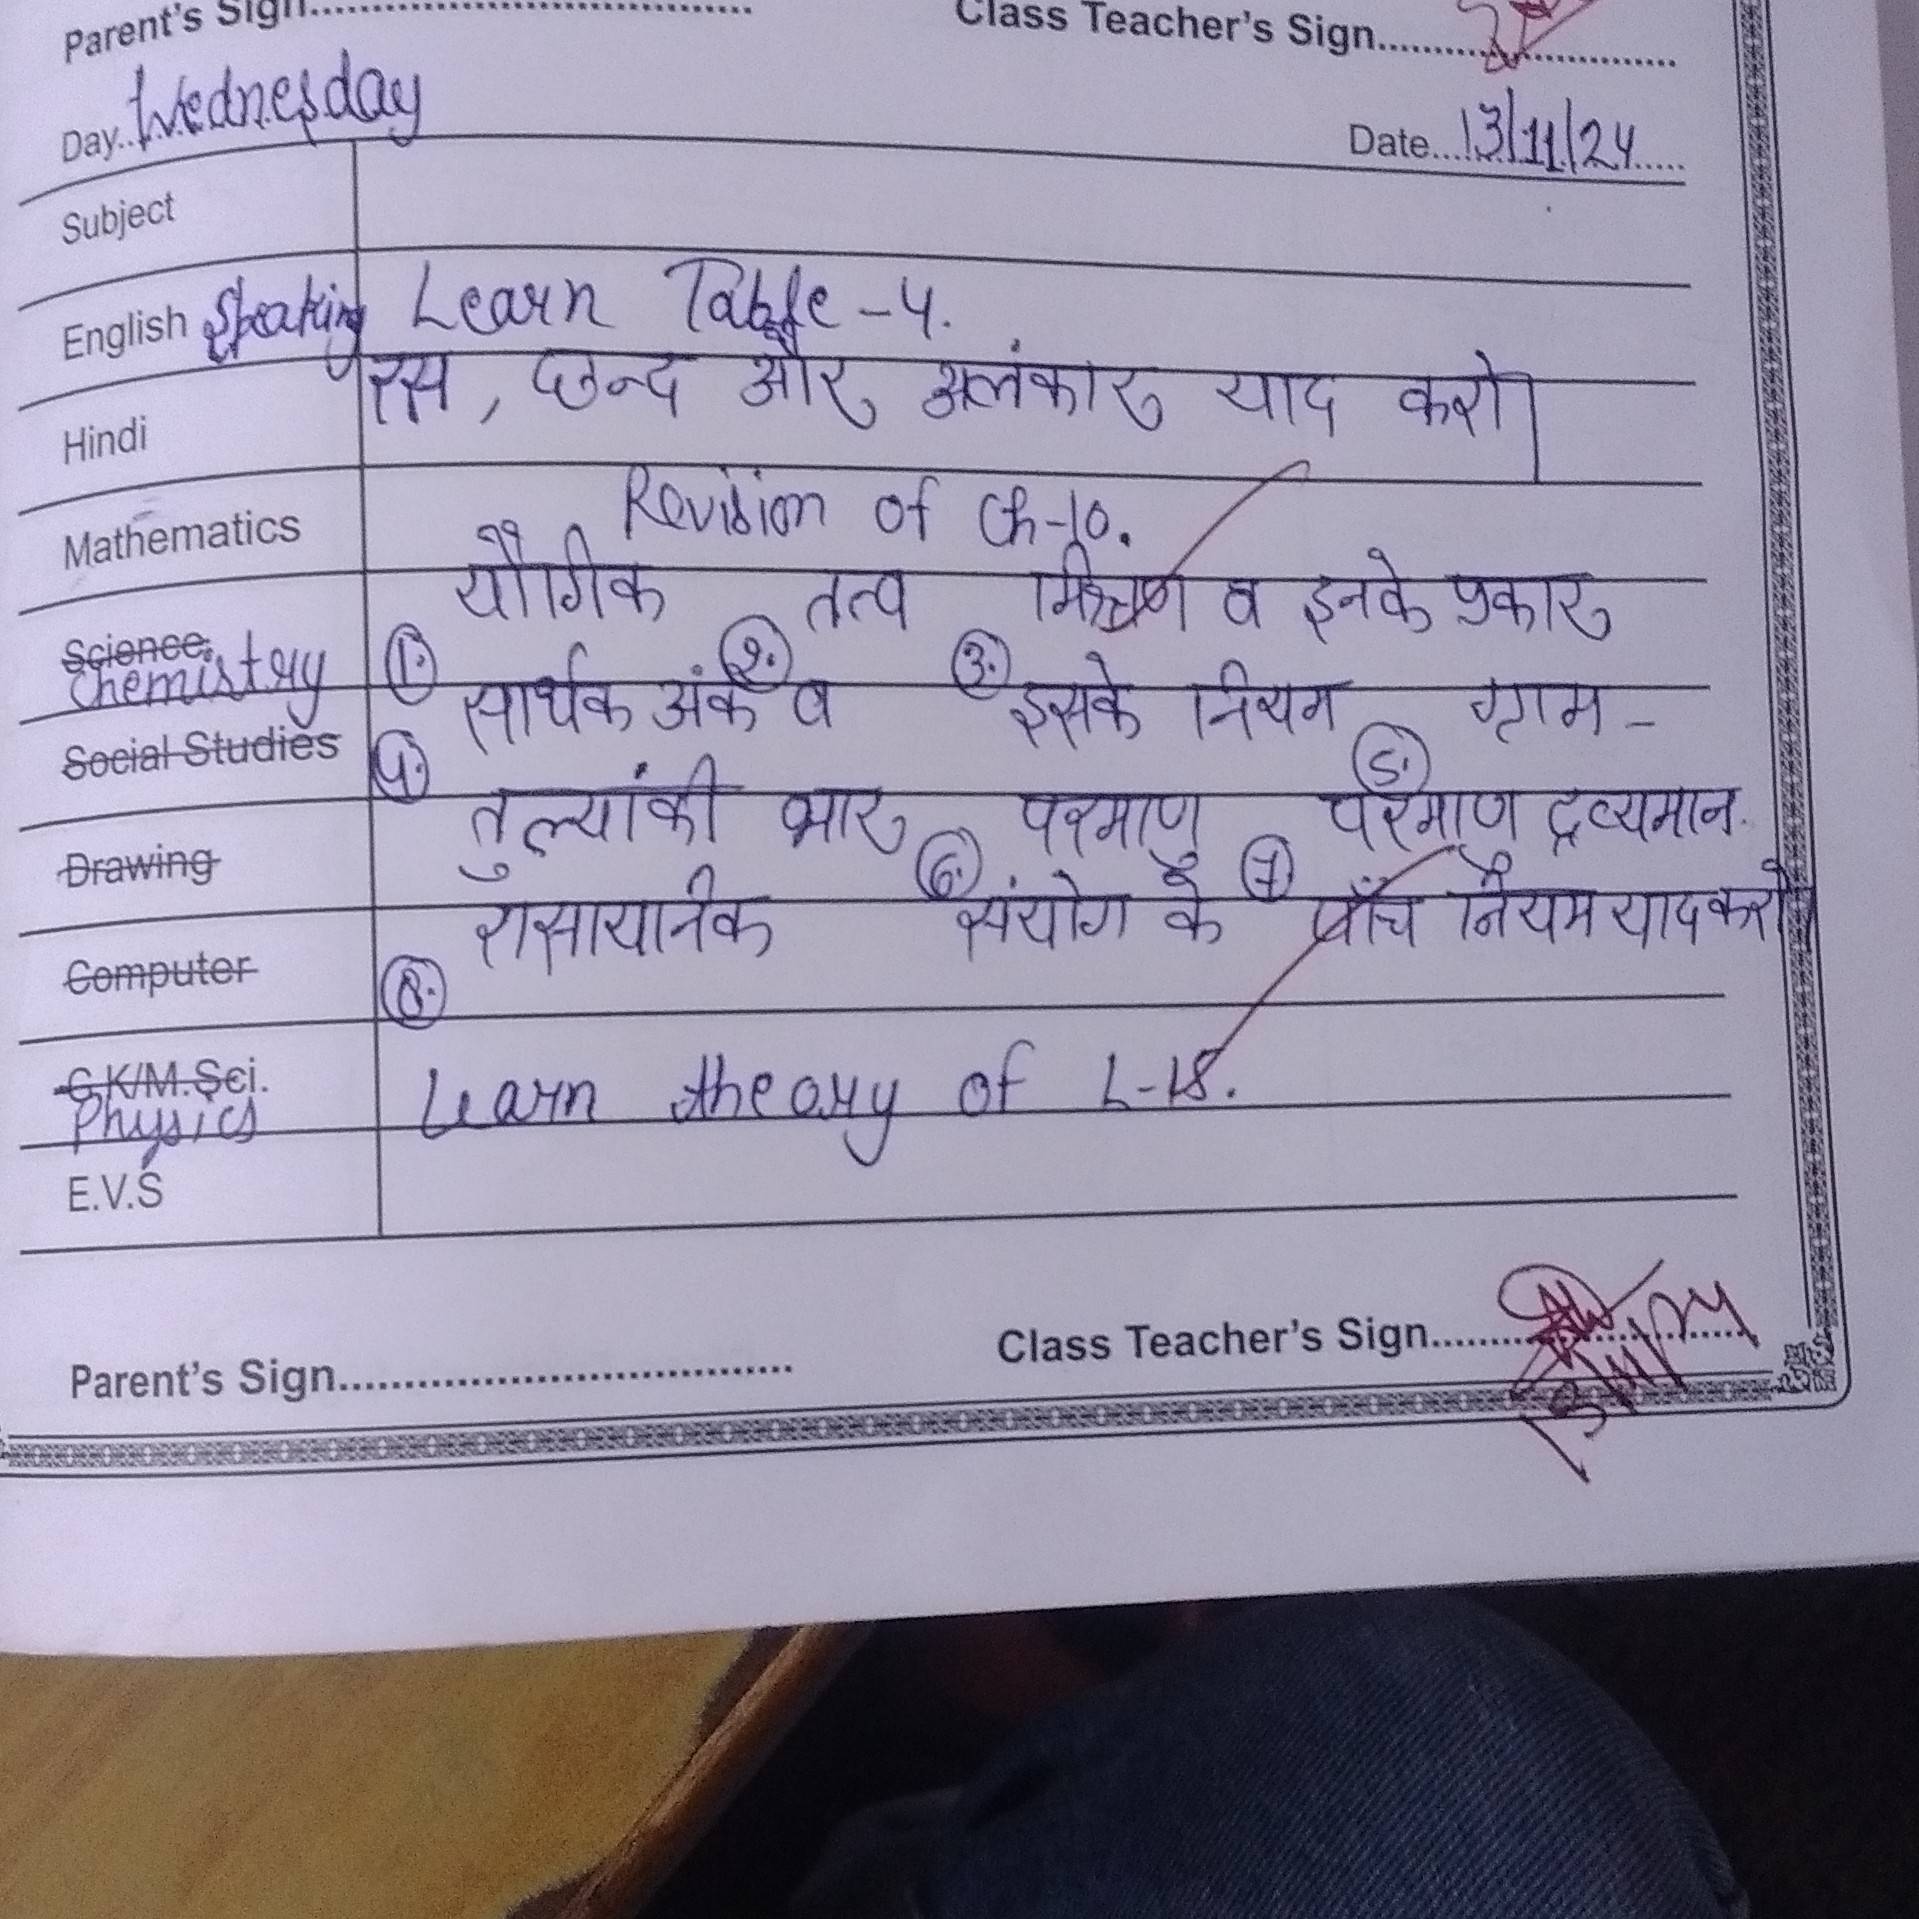 Parent's Sign.......... Class Teacher's Sign..........
Day..Wednesday Date...13/11/24.....
Subject
English Speaking Learn Table - 4.
Hindi रस, छन्द और अलंकार याद करो।
Mathematics Revision of Ch-10.
Science. Chemistry ① यौगिक ② तत्व ③ मिश्रण व इनके प्रकार
Social Studies ④ सार्थक अंक व इसके नियम ⑤ ग्राम -
Drawing तुल्यांकी भार ⑥ परमाणु ⑦ परमाणु द्रव्यमान.
Computer ⑧ रासायनिक संयोग के पाँच नियम याद करो
G.K/M.Sci. Physics Learn theory of L-18.
E.V.S
Parent's Sign.......... Class Teacher's Sign..........
13/11/24